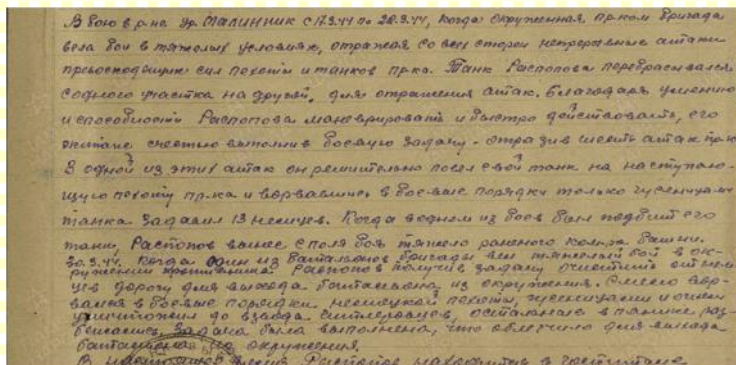 В бою в р-не ур. Малинник с 17.3.44 по 28.3.44, когда окруженная пр-ком бригада
вела бои в тяжолых условиях, отражая со всех сторон непрерывные атаки
превосходящих сил пехоты и танков пр-ка. Танк Распопова перебрасывался
с одного участка на другой, для отражения атак. Благодаря умению
и способности Распопова маневрировать и быстро действовать, его
экипаж с честью выполнил боевую задачу - отразив шесть атак пр-ка
В одной из этих атак он решительно повел свой танк на наступаю-
щую пехоту пр-ка и ворвавшись в боевые порядки только гусеницами
танка задавил 13 немцев. Когда в одном из боев был подбит его
танк, Распопов вынес с поля боя тяжело раненого ком-ра башни.
30.3.44. Когда один из батальонов бригады вел тяжелый бой в ок-
ружении Распопов получив задачу очистить от нем-
цев дорогу для выхода батальона из окружения. Смело вор-
вался в боевые порядки немецкой пехоты, гусеницами и огнем
уничтожил до взвода гитлеровцев, остальные в панике раз-
бежались. Задача была выполнена, что облегчило для выхода
батальона из окружения.
В настоящее время Распопов находится в госпитале